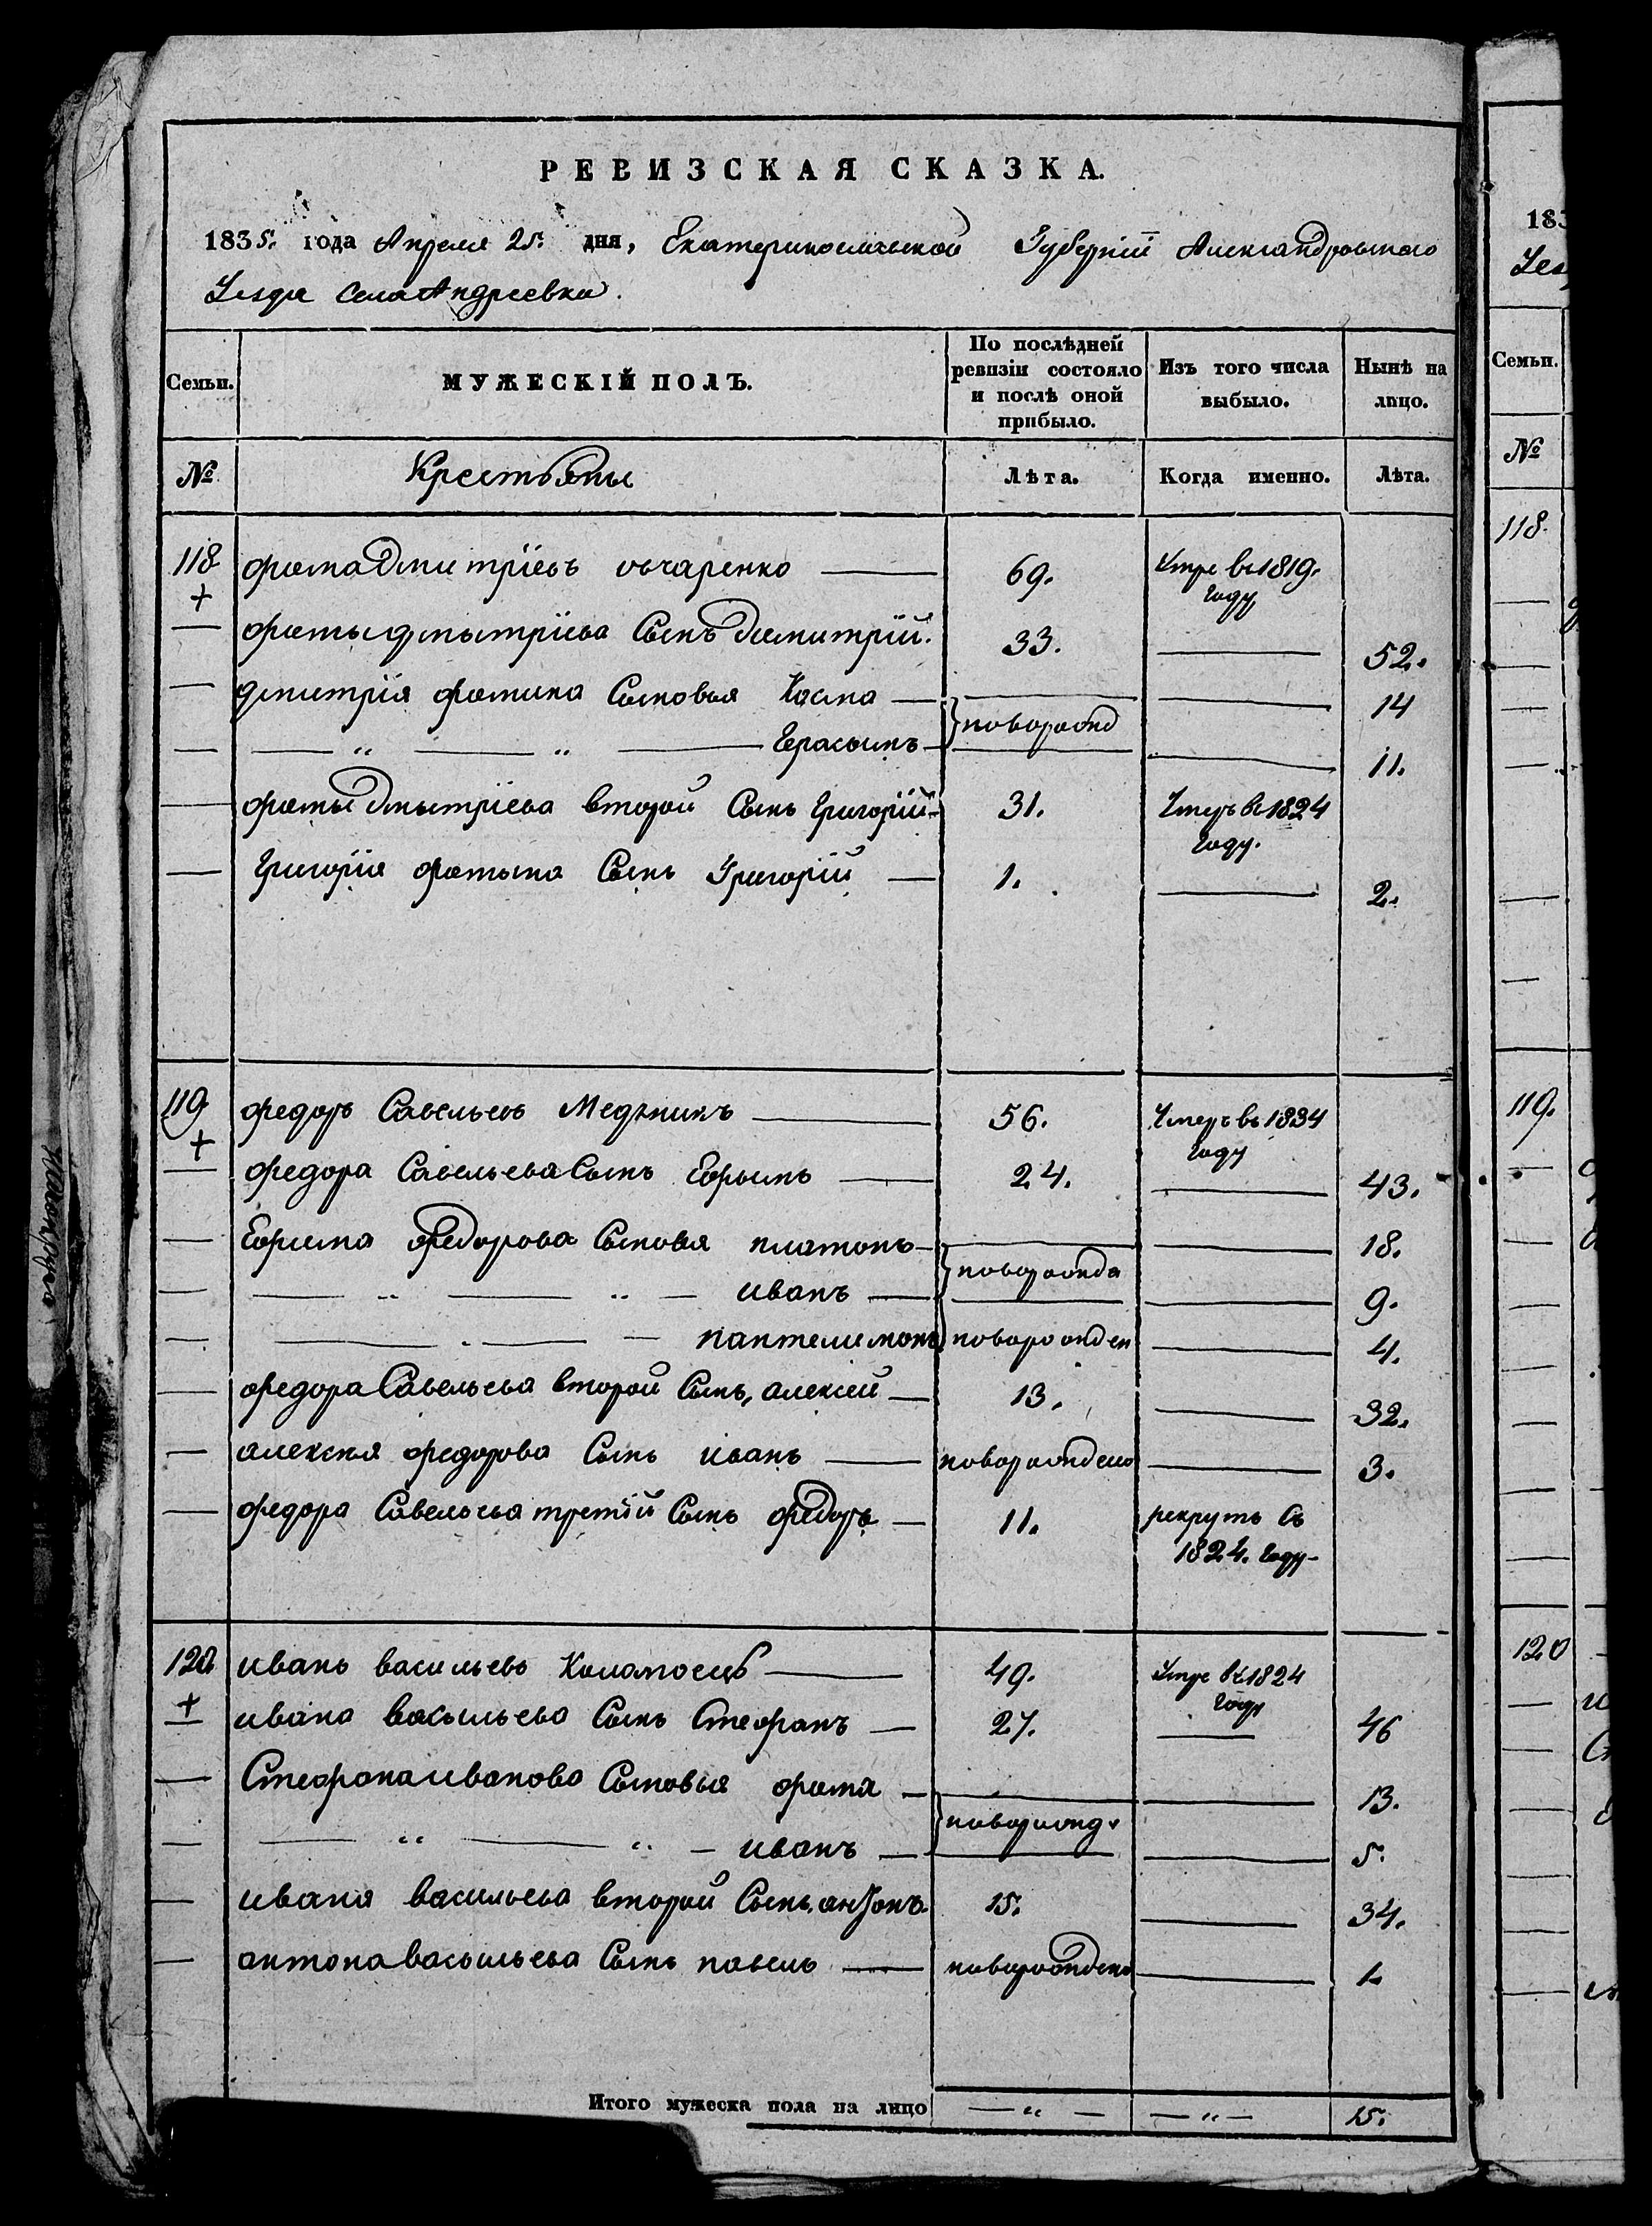 РЕВИЗСКАЯ СКАЗКА.
1835. года Апреля 25. дня, Екатеринославской Губернïи Александровского
Уезда Села Андреевки.
Семьи.
МУЖЕСКІЙ ПОЛЪ.
По послѣдней ревизіи состояло и послѣ оной прибыло.
Изъ того числа выбыло.
Нынѣ на лицо.
№
Крестьяне
Лѣта.
Когда именно.
Лѣта.
118 фома Дмитрïевъ овчаренко 69. Умре въ 1819. году
+
фомы дмытрïева Сынъ Демитрïй. 33. 52.
дмитрïя фомина Сыновья Косма 14
новорожд
— „ — „ — Герасымъ 11.
фомы Дмытрïева второй Сынъ Григорïй 31. Умеръ въ 1824 году.
Григорïя фомына Сынъ Григорïй 1. 2.
119 федоръ Савельевъ Медяникъ 56. Умеръ въ 1834 году
+
федора Савельева Сынъ Ефымъ 24. 43.
Ефима федорова Сыновья платонъ 18.
новорожде
— „ — „ — иванъ 9.
— „ — — пантелимонъ новорожден 4.
федора Савельева второй Сынъ, алексей 13. 32.
алексея федорова Сынъ иванъ новорожден 3.
федора Савельева третïй Сынъ федоръ 11. рекрутъ въ 1824. году
120 иванъ васильевъ Коломоецъ 49. Умре въ 1824 году
+
ивана васыльева Сынъ Стефанъ 27. 46
Стефана иванова Сыновья фома 13.
новорожд.
— „ — „ — иванъ 5.
ивана васильева второй Сынъ, антонъ 15. 34.
антона васыльева Сынъ павелъ новорожден 1.
Итого мужеска пола на лицо — „ — — „ — 15.
183
Уез
Семьи.
№
118.
119.
120